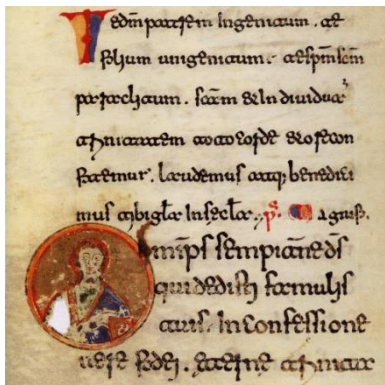 Te dm̄ patrem Ingenitum . te
filium unigenitum . te spm̄ scm̄
paraclitum . scām et Indiuiduā
trinitatem toto corde et ore con
fitemur . laudemus atq; benedici
mus tibi glā In secła . ps̄
mnips sempitne ds̄
qui dedisti famulis
tuis . In confessione
uere fidei . eterne trinitat